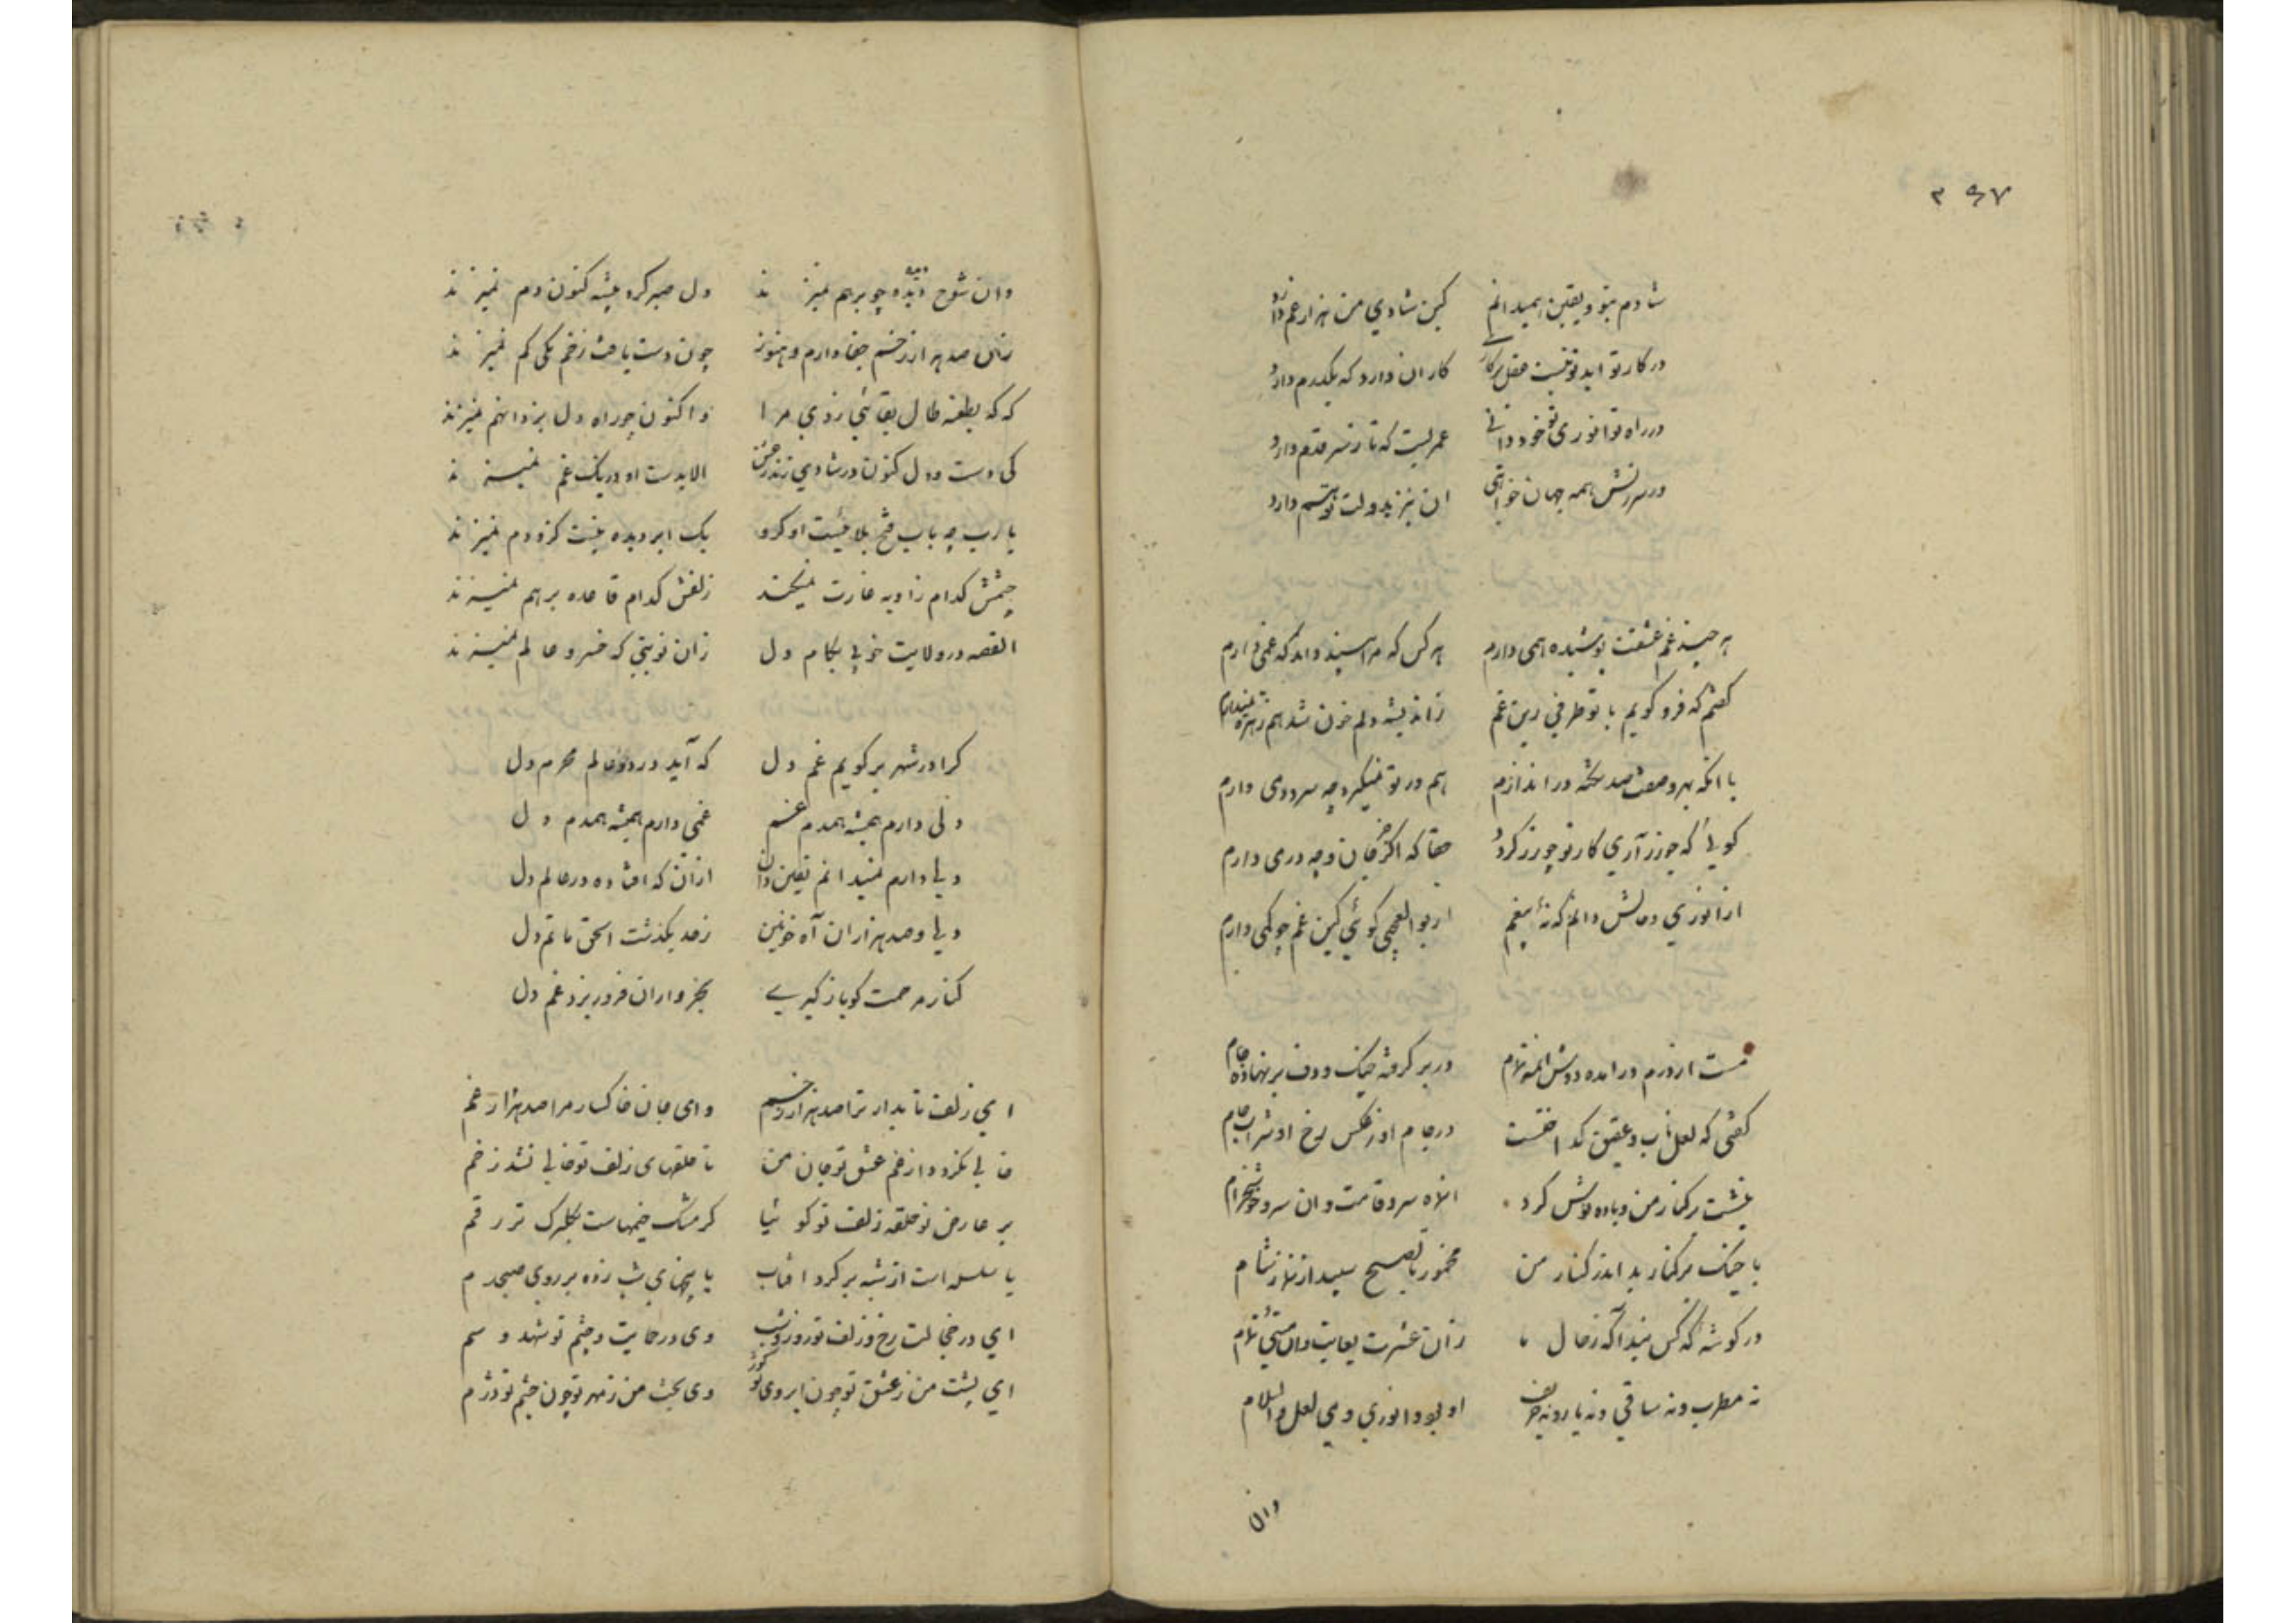 ۳۶۷
شادم بتو و یقین همیدانم کین شادی من هزار غم دارد
در کار تو اید تو نیست عقل بر کار کار ان دارد که یکدرم دارد
در راه تو انوری تو خود دانی عمریست که تا ز سر قدم دارد
در سرزنش همه جهان خواهی ان نیز بدولت تو هم دارد
هر چند غم عشقت پوشیده همی دارم هر کس که مرا بیند داند که غمی دارم
گفتم که فرو گویم با تو طرفی زین غم زاندیشه دلم خون شد هم زهره نمیدارم
با انکه بهر وصفت صد در اندازم هم در تو نمیگیرد چه سرد دمی دارم
گویی که چو زر آری کار تو چو زر گردد حقا که اگر جز جان وجه درمی دارم
از انوری و مالش دانم که نه بیغم از بوالعجبی گوئی کین غم چو کمی دارم
مست از درم درامده دوش ان مه تمام در بر گرفته چنک و دف بر نهاده جام
گفتی که لعل ناب و عقیق گداختست در جام او ز عکس رخ او شراب جام
بنشست بر کنار من و باده نوش کرد انماه سرو قامت و ان سرو خوشخرام
با چنک بر کنار بد اندر کنار من مخمور تا بصبح سپید از نماز شام
در گوشهٔ که کس نبد اگه ز حال ما زان عشرت بغایت وان مستی تمام
نه مطرب و نه ساقی و نه یار و نه حریف او بود و انوری و می لعل والسلام
وان
وان شوخ دیده چو بر هم نمیزند دل صبر کرد پیشه کنون دم نمیزند
زان صد هزار زخم جفا دارم و هنوز چون دست یافت زخم یکی کم نمیزند
که که بطعنه طال بقائی زدی مرا و اکنون چو راه دل بزد انهم نمیزند
کی دست دل کنون در شادی زند ز من الا بدست او در یک غم نمیزند
یا رب چه باب فتح بلائیست او کزو یک ابر دیده نیست کزو دم نمیزند
چشمش کدام زاویه غارت نمیکند زلفش کدام قاعده بر هم نمیزند
القصه در ولایت خوبی بکام دل زان نوبتی که خسرو عالم نمیزند
کرا در شهر بر گویم غم دل که آید در دو عالم محرم دل
دلی دارم همیشه همدم غم غمی دارم همیشه همدم دل
دلی دارم نمیدانم یقین دان ازان که افتاده در عالم دل
دلی و صد هزاران آه خونین ز حد بگذشت الحق ماتم دل
کنار مرحمت گو باز گیری بخرواران فرو ریزد غم دل
ای زلف تابدار ترا صد هزار خم وای جان خاکسار مرا صد هزار غم
خالی نگردد از غم عشق تو جان من تا حلقهای زلف تو خالی نشد ز خم
بر عارض تو حلقه زلف تو گوئیا کز مشک خیمهاست بگلبرگ تر رقم
یا سلسله است از شبه بر گرد افتاب یا پیچهای شب زده بر روی صبحدم
ای در خجالت رخ و زلف تو روز و شب وی در حمایت و چشم تو شهد و سم
ای پشت من ز عشق تو چون ابروی تو کوژ وی بخت من ز مهر تو چون چشم تو دژم